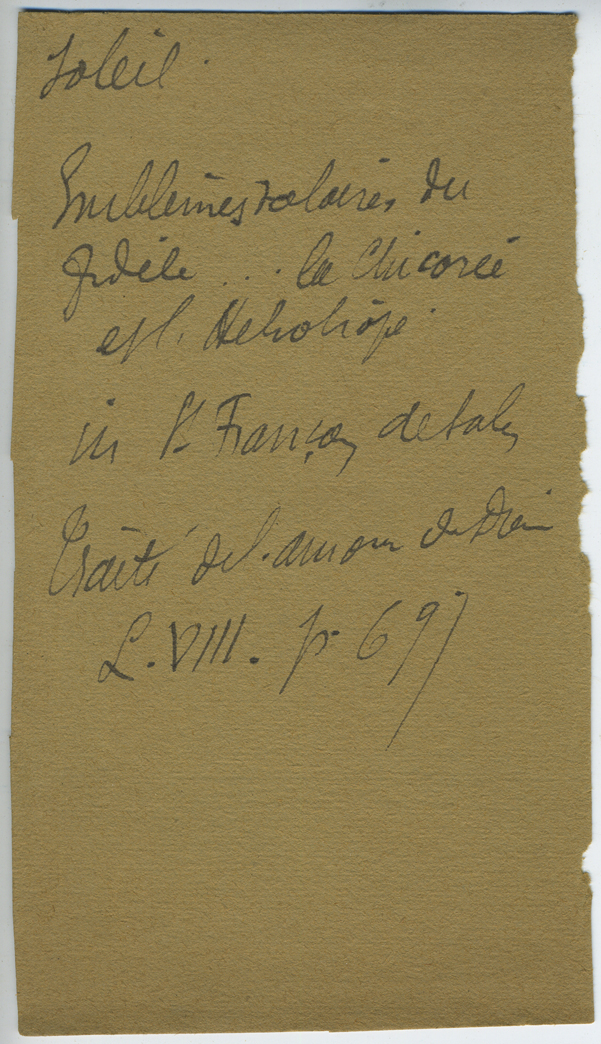 Soleil.
Emblèmes solaires du
fidèle ... la Chicorée
et l'Héliotrope.
in St François de Sales
Traité de l'amour de Dieu
L. VIII. p. 697